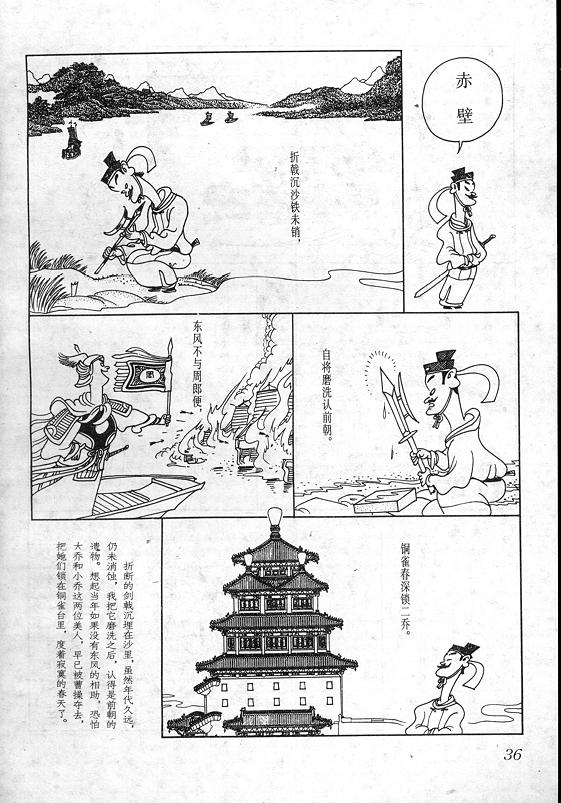 赤壁
折戟沉沙铁未销，
自将磨洗认前朝。
东风不与周郎便，
铜雀春深锁二乔。
折断的剑戟沉埋在沙里，虽然年代久远，
仍未消蚀，我把它磨洗之后，认得是前朝的
遗物。想起当年如果没有东风的相助，恐怕
大乔和小乔这两位美人，早已被曹操夺去，
把她们锁在铜雀台里，度着寂寞的春天了。
36